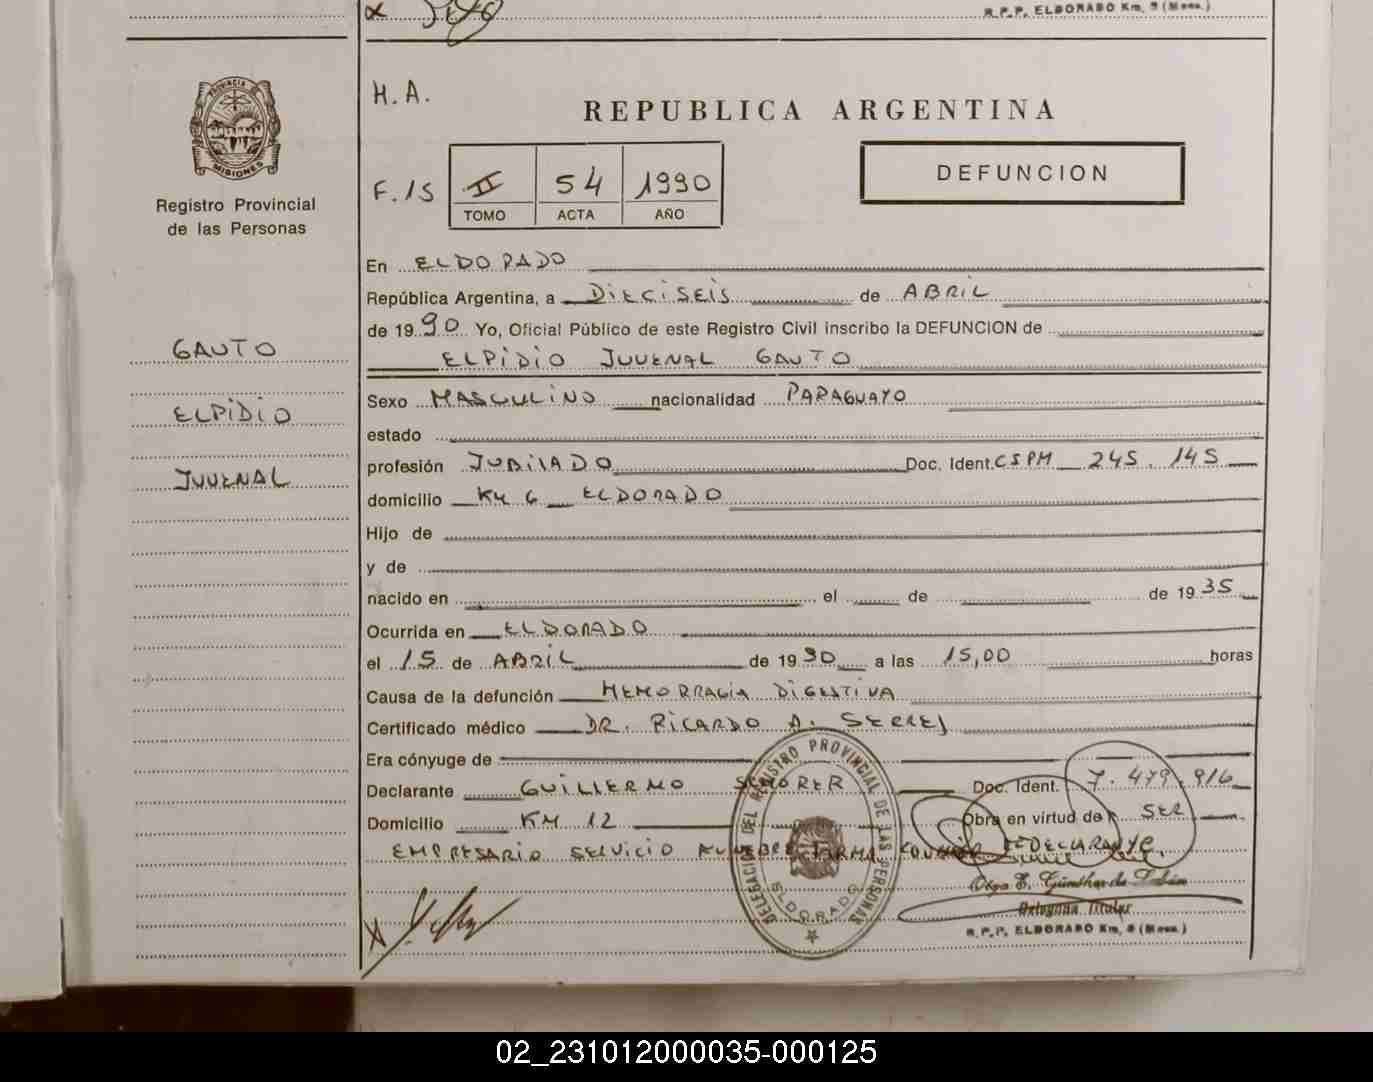 R.P.P. ELDORADO Km. 9 (Mnes.)
PROVINCIA DE
MISIONES
Registro Provincial
de las Personas
GAUTO
ELPIDIO
JUVENAL
H.A.
REPUBLICA ARGENTINA
F. 15
II 54 1990
TOMO ACTA AÑO
DEFUNCION
En ELDORADO
República Argentina, a DIECISEIS de ABRIL
de 1990 Yo, Oficial Público de este Registro Civil inscribo la DEFUNCION de
ELPIDIO JUVENAL GAUTO
Sexo MASCULINO nacionalidad PARAGUAYO
estado
profesión JUBILADO Doc. Ident. CSPM 245.145
domicilio KM 6 ELDORADO
Hijo de
y de
nacido en el de de 1935
Ocurrida en ELDORADO
el 15 de ABRIL de 1990 a las 15,00 horas
Causa de la defunción HEMORRAGIA DIGESTIVA
Certificado médico DR. RICARDO A. SERRES
Era cónyuge de
Declarante GUILLERMO Doc. Ident. 7.479.916
Domicilio KM 12 Obra en virtud de SER
EMPRESARIO SERVICIO FUNEBRE FIRMA EL DECLARANTE
DELEGACION DEL REGISTRO PROVINCIAL DE LAS PERSONAS
ELDORADO
Olga E. Günther de
Delegada Titular
R.P.P. ELDORADO Km. 9 (Mnes.)
02_231012000035-000125